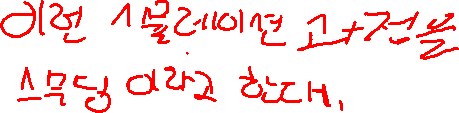 이런 시뮬레이션 고+전을
스무딩 이라고 한대,